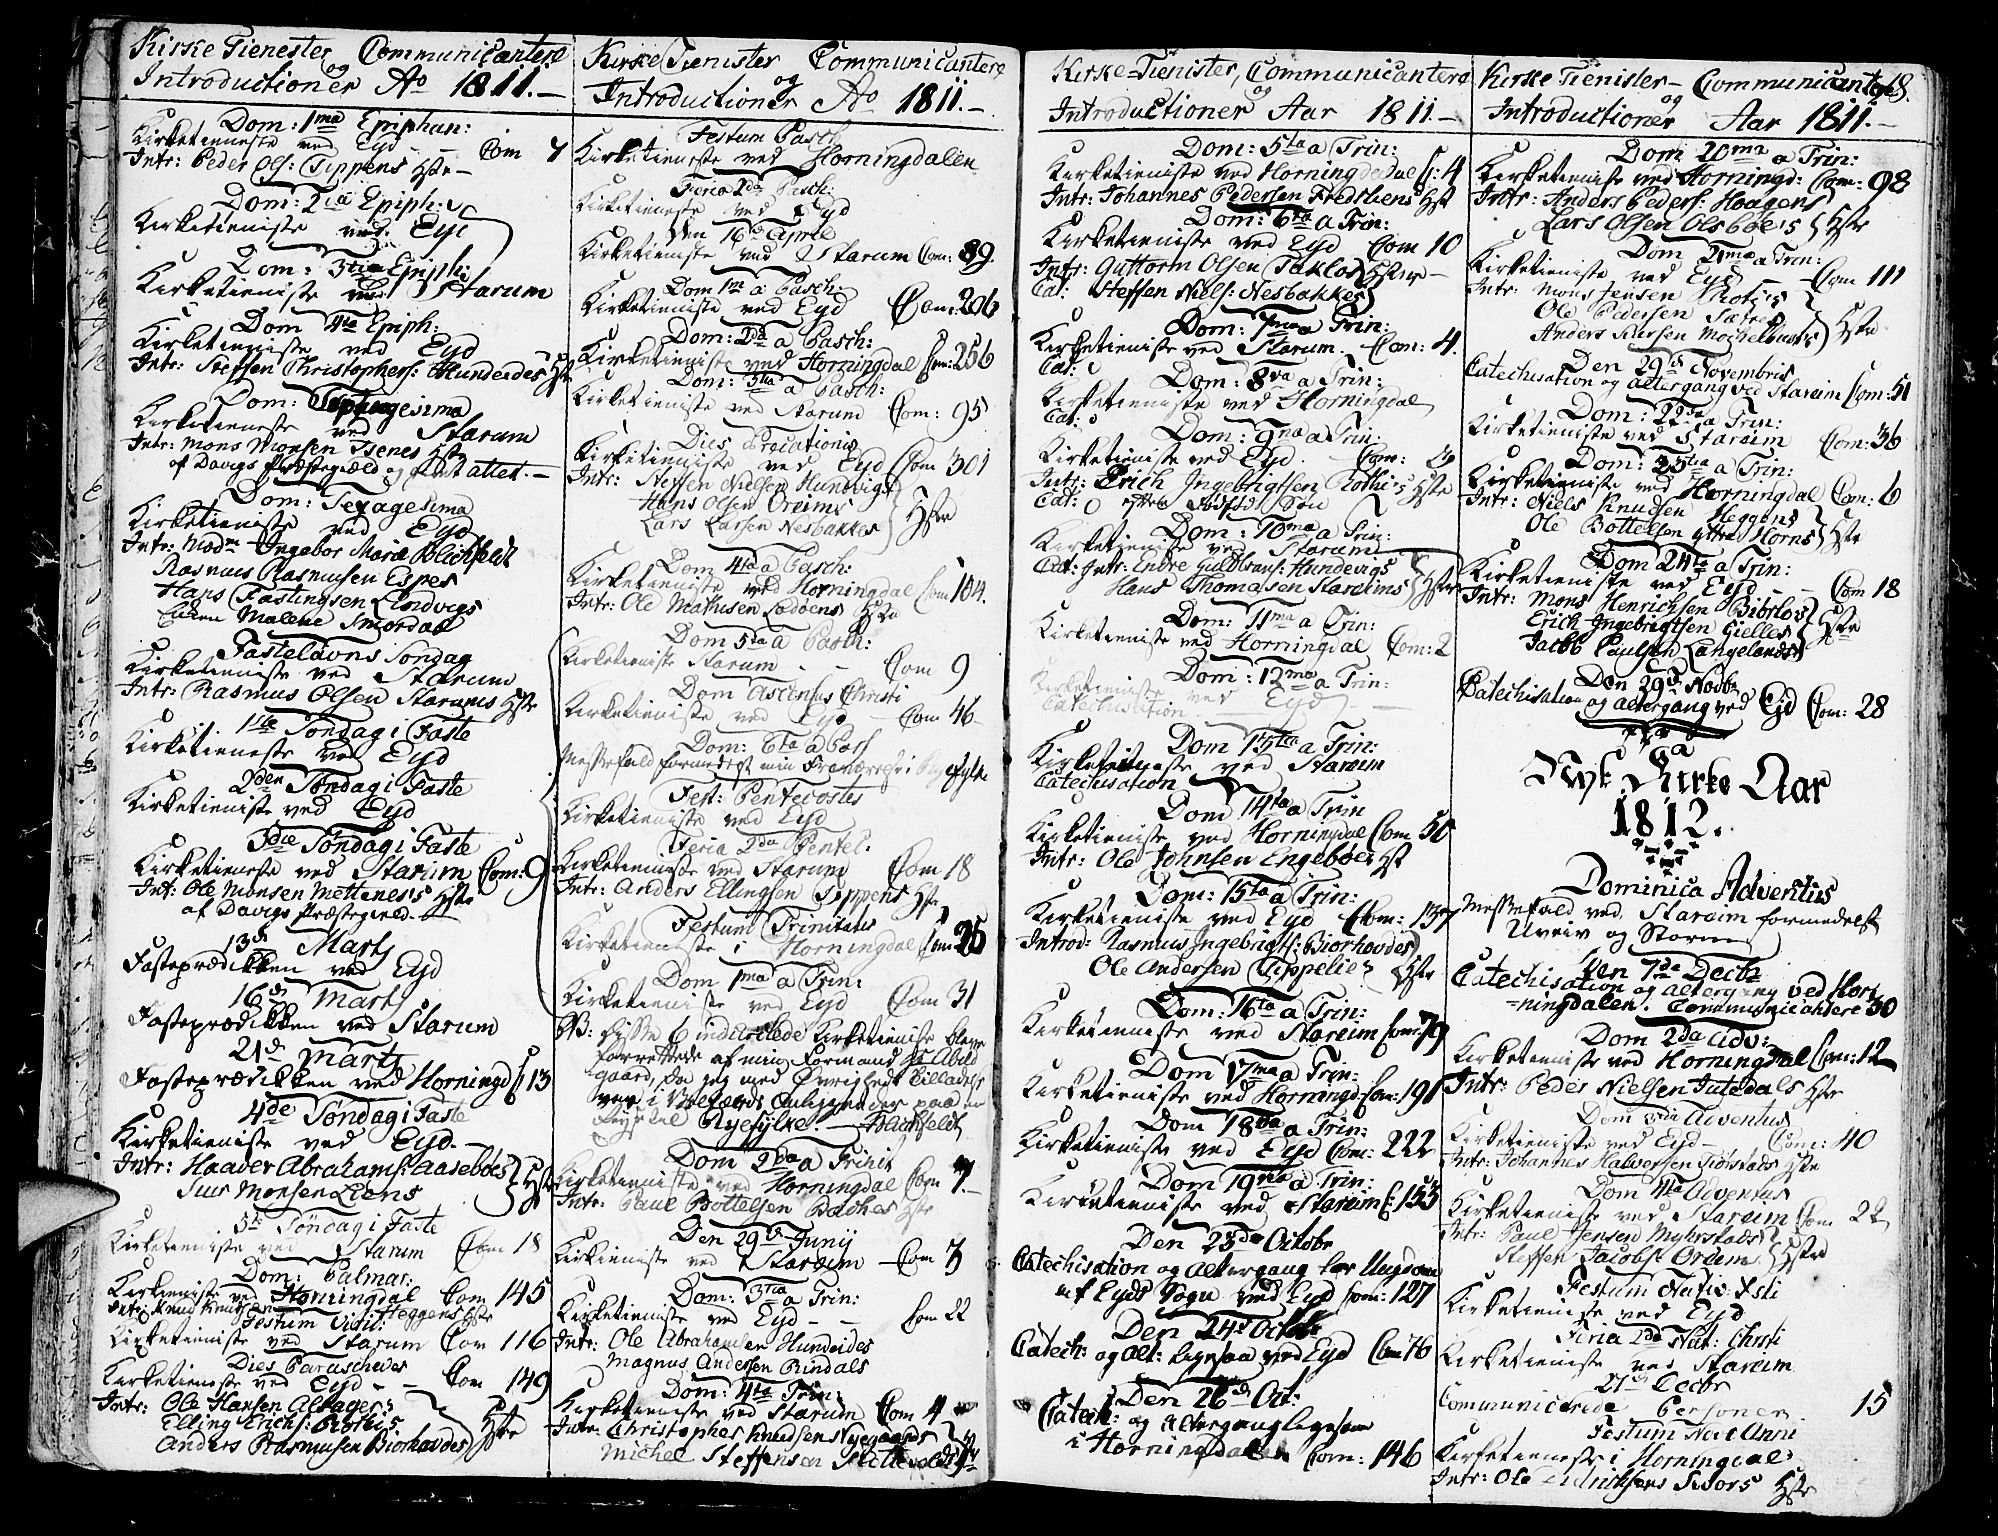 Kirke Tienester Communicantere
og
Introductioner Ao 1811.
Dom: 1ma Epiphan:
Kirketieneste ved Eyd Com 7
Intr: Peder Ols: Tippens Hstr
Dom: 2da Epiph:
Kirketieniste ved Eyd
Dom: 3tia Epiph:
Kirketieniste ved Starum
Dom 4ta Epiph:
Kirketieniste ved Eyd
Intr: Steffen Christophers: Hundeides Hstr
Dom: Septuagesima
Kirketieneste ved Starum
Intr: Mons Monsen Isenes Hstr
af Davigs Præstegield og attet.
Dom: Sexagesima
Kirketieniste ved Eyd
Intr: Madm Ingebor Marie Blichfeldt
Rasmus Rasmusen Espes
Hans Fastingsen Lindvigs
Malene Smordal
Fastelavns Søndag
Kirketieneste ved Starum
Intr: Rasmus Olsen Starums Hstr
1ste Søndag i Faste
Kirketieneste ved Eyd
2den Søndag i Faste
Kirketieniste ved Eyd
3die Søndag i Faste
Kirketieneste ved Starum Com: 9
Int: Ole Monsen Mettenes Hstr
af Davigs Præstegield.
13d Marts
Fasteprædikken ved Eyd
16d Marts
Fasteprædikken ved Starum
21d Marts
Fasteprædikken ved Horningd C 13
4de Søndag i Faste
Kirketieniste ved Eyd.
Intr: Haader Abrahams: Aasebøes
Siur Monsen Liens Hstr
5te Søndag i Faste
Kirketieniste ved Starum Com 18
Dom: Palmar:
Kirketieniste ved Horningdal Com 145
Intr: Knud Knudsen Heggens Hstr
Festum Viridi:
Kirketieniste ved Starum Com 116
Dies Parascheves
Kirketieneste ved Eyd Com 149
Intr: Ole Hansen Alsager
Elling Erichs: Rothis
Anders Rasmusen Biorhovdes Hstr
Kirke Tienister Communicantere
og
Introductioner Ao 1811.
Festum Pasch
Kirketieneste ved Horningdalen
Feria 2da Pasch:
Kirketieneste ved Eyd
Den 16d April
Kirketieniste ved Starum Com: 89.
Dom 1m a Pasch:
Kirketieniste ved Eyd Com: 206
Dom: 2da a Pasch:
Kirketieniste ved Horningdal Com: 256
Dom: 3tia a Pasch:
Kirketieniste ved Starum Com: 95
Dies Precationis
Kirketieniste ved Eyd Com 301
Intr: Steffen Nielsen Hundvigs
Hans Olsen Oreims
Lars Larsen Nesbakkes Hstr
Dom 4ta a Pasch:
Kirketieniste ved Horningdal Com 104.
Intr: Ole Mathisen Lødøens Hstr
Dom 5ta a Pasch:
Kirketieniste Starum Com 9
Dom Ascensus Christi
Kirketieniste ved Eyd Com 46
Dom: 6ta a Pasch
Messefald formedelst min Fraværelse i Ryefylke
Fest: Pentecostes
Kirketieniste ved Eyd
Feria 2da Pentec:
Kirketieniste ved Starum Com 18
Intr: Anders Ellingsen Tippens Hstr
Festum Trinitatis
Kirketieniste i Horningdal Com 25
Dom 1ma a Trin:
Kirketieniste ved Eyd Com 31
NB: disse 6 indcirclede Kirketieniste bleve
forrettede af min Formand Hr Abild
gaard, da jeg med Øvrigheds Tilladelse
var i Velfærds Anliggender paa en
Reyse til Ryefylke. Blichfeldt
Dom 2da a Trinit
Kirketieniste ved Horningdal Com 7.
Intr: Paul Bottelsen Bachas Hstr
Den 29d Junij
Kirketieniste ved Starum Com 3
Dom: 3tia a Trin:
Kirketieniste ved Eyd Com 22
Intr: Ole Abrahamsen Hundeides
Magnus Andersen Rindals
Dom: 4ta Trin:
Kirketieniste ved Starum Com 4
Intr: Christopher Knudsen Nyegaards
Michel Steffensen
Kirke-Tienister, Communicantere
og
Introductioner Aar 1811.
Dom: 5ta a Trin:
Kirketieniste ved Horningdal C: 4
Intr: Johannes Pedersen Fredsviens Hst
Dom: 6ta a Trin:
Kirketieniste ved Eyd Com 10
Intr: Guttorm Olsen Taklos Hstr
Cat: Steffen Niels: Nesbakkes
Dom: 7ma a Trin:
Kirketieniste ved Starum. Com: 4.
Cat:
Dom: 8va a Trin:
Kirketieniste ved Horningdal
Cat:
Dom: 9na a Trin:
Kirketieniste ved Eyd. Com:
Intr: Erich Ingebrigtsen Rothis Hstr
Cat: efter Dødfød Søn
Dom: 10ma a Trin:
Kirketieniste ved Starum
Cat: Intr: Endre Guldbrans: Hundevigs
Hans Thomasen Stareims Hstr
Dom: 11ma a Trin:
Kirketieniste ved Horningdal Com: 2
Dom: 12ma a Trin:
Kirketieniste ved Eyd
Catechisation
Dom 13tia a Trin:
Kirketieniste ved Stareim
Catechisation
Dom 14ta a Trin
Kirketieniste ved Horningdal Com 50
Intr: Ole Johnsen Engebøes Hst
Dom: 15ta a Trin:
Kirketieniste ved Eyd Com: 137
Introd: Rasmus Ingebrigts: Biorhovdes
Ole Andersen Tippelies Hstr
Dom: 16ta a Trin:
Kirketieniste ved Stareim Com: 79
Dom 17ma a Trin:
Kirketieniste ved Horningd. Com: 191
Dom 18va a Trin:
Kirketieniste ved Eyd Com: 222
Dom 19na a Trin:
Kirketieniste ved Stareim C: 153
Den 23de Octobr
Catechisation og Altergang for Ungdom
af Eyds Sogn ved Eyd Com: 127
Den 24d Octobr
Catech: og Alt: ligesaa ved Eyd Com 76
Den 26d Oct:
Catech: og Altergang ligesaa
i Horningdalen Com: 146
Kirke Tienister Communicantere 18.
og
Introductioner Aar 1811.
Dom 20ma a Trin:
Kirketieniste ved Horningd: Com: 98
Intr: Anders Peders: Haagens
Lars Olsen Olsbøes Hstr
Dom 21ma a Trin:
Kirketieniste ved Eyd Com 111
Intr: Mons Jensen Rotis
Ole Pedersen Sætre
Anders Larsen Mochelbusts Hstr
Den 29d Novembris
Catechisation og altergang ved Stareim Com: 51
Dom: 22da a Trin:
Kirketieniste ved Stareim Com: 36
Dom: 23tia a Trin:
Kirketieniste ved Horningdal Com: 6
Intr: Niels Knudsen Heggens
Ole Bottelsen yttre Horns Hstr
Dom 24ta a Trin:
Kirketieniste ved Eyd Com 18
Intr: Mons Henrichsen Biørlos
Erich Ingebrigtsen Gielles
Jacob Paulsen Langelands Hstr
Den 29d Novbr
Catechisation og altergang ved Ejd Com: 28
Nyt Kirke Aar
1812.
Dominica Adventus
Messefald ved Stareim formedelst
Uveir og Storm
Den 7de Decbr
Catechisation og altergang ved Hor-
ningdalen. Communicantere 30
Dom 2da Adv:
Kirketieniste ved Horningdal Com: 12
Intr: Peder Nielsen Jutedals Hstr
Dom 3tia Adventus
Kirketieniste ved Eyd Com: 40
Intr: Johannes Halversen Tiørstads Hstr
Dom 4ta Adventus
Kirketieniste ved Stareim Com 22
Intr: Paul Jensen Myhrstads
Steffen Jacobs: Oreims Hstr
Festum Nativ: Xsti
Kirketieniste ved Eyd
Feria 2da Nat: Christi
Kirketieniste ved Stareim
27d Decbr
Communicerede Personer 15
Festum Novi Anni
Kirketieneste i Horningdal:
Intr: Ole Skors Hstr